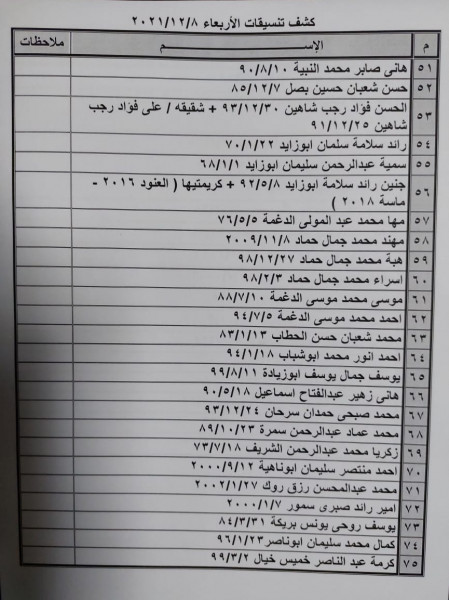 كشف تنسيقات الأربعاء ٢٠٢١/١٢/٨
م الإســـــم ملاحظات
٥١ هانى صابر محمد النبية ٩٠/٨/١٠
٥٢ حسن شعبان حسين بصل ٨٥/١٢/٧
٥٣ الحسن فؤاد رجب شاهين ٩٣/١٢/٣٠ + شقيقه / على فؤاد رجب
شاهين ٩١/١٢/٢٥
٥٤ رائد سلامة سلمان ابوزايد ٧٠/١/٢٢
٥٥ سمية عبدالرحمن سليمان ابوزايد ٦٨/١/١
٥٦ جنين رائد سلامة ابوزايد ٩٢/٥/٨ + كريمتيها ( العنود ٢٠١٦ -
ماسة ٢٠١٨ )
٥٧ مها محمد عبد المولى الدغمة ٧٦/٥/٥
٥٨ مهند محمد جمال حماد ٢٠٠٩/١١/٨
٥٩ هبة محمد جمال حماد ٩٨/١٢/٢٧
٦٠ اسراء محمد جمال حماد ٩٨/٢/٣
٦١ موسى محمد موسى الدغمة ٨٨/٧/١٠
٦٢ احمد محمد موسى الدغمة ٩٤/٧/٥
٦٣ محمد شعبان حسن الحطاب ٨٣/١/١٣
٦٤ احمد انور محمد ابوشباب ٩٤/١/١٨
٦٥ يوسف جمال يوسف ابوزيادة ٩٩/٨/١١
٦٦ هانى زهير عبدالفتاح اسماعيل ٩٠/٥/١٨
٦٧ محمد صبحى حمدان سرحان ٩٣/١٢/٢٤
٦٨ محمد عماد عبدالرحمن سمرة ٨٩/١٠/٢٣
٦٩ زكريا محمد عبدالرحمن الشريف ٧٣/٧/١٨
٧٠ احمد منتصر سليمان ابوناهية ٢٠٠٠/٩/١٢
٧١ محمد عبدالمحسن رزق روك ٢٠٠٢/١/٢٧
٧٢ امير رائد صبرى سمور ٢٠٠٠/١/٧
٧٣ يوسف روحى يونس بريكة ٨٤/٣/٣١
٧٤ كمال محمد سليمان ابوناصر ٩٦/١/٢٣
٧٥ كرمة عبد الناصر خميس خيال ٩٩/٣/٢